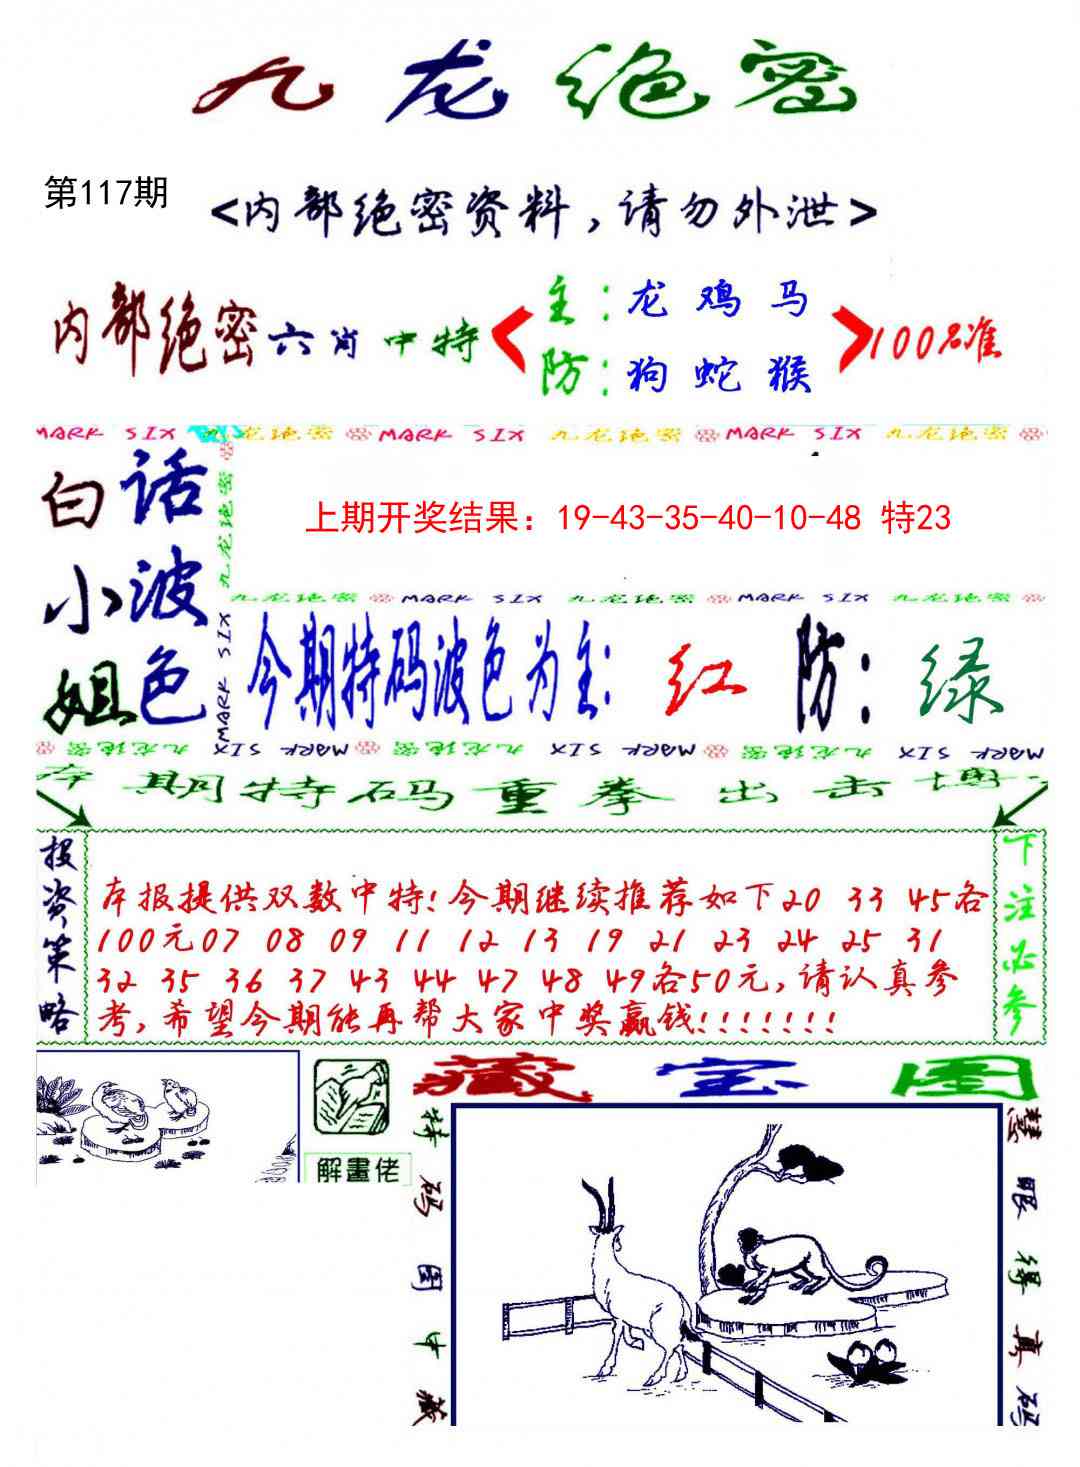 九龙绝密
第117期
<内部绝密资料,请勿外泄>
内部绝密六肖中特
主:龙 鸡 马
防:狗 蛇 猴
100%准
MARK SIX 九龙绝密 MARK SIX 九龙绝密 MARK SIX 九龙绝密
白话
小波
姐色
九龙绝密
MARK SIX
上期开奖结果：19-43-35-40-10-48 特23
九龙绝密 MARK SIX 九龙绝密 MARK SIX 九龙绝密
今期特码波色为主: 红 防: 绿
九龙绝密 MARK SIX 九龙绝密 MARK SIX 九龙绝密 MARK SIX
本期特码重拳出击博
投资策略
本报提供双数中特!今期继续推荐如下20 33 45各
100元07 08 09 11 12 13 19 21 23 24 25 31
32 35 36 37 43 44 47 48 49各50元,请认真参
考,希望今期能再帮大家中奖赢钱!!!!!!!
下注必参
解畫佬
藏宝图
特码图中藏
慧眼得真码